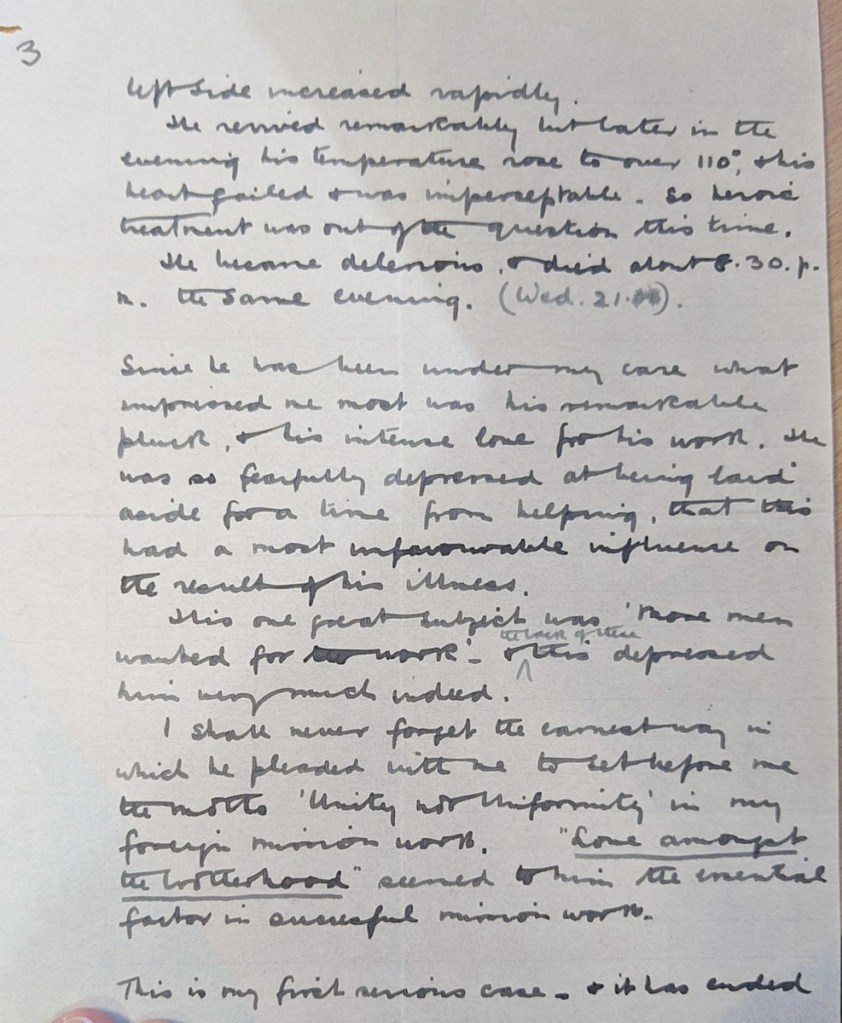 3
left side increased rapidly.
He revived remarkably but later in the
evening his temperature rose to over 110°, & his
heart failed & was imperceptable. So heroic
treatment was out of the question this time.
He became delerious, & died about 8.30. p.
m. the same evening. (Wed. 21.).
Since he has been under my care what
impressed me most was his remarkable
pluck, & his intense love for his work. He
was so fearfully depressed at being laid
aside for a time from helping, that this
had a most unfavourable influence on
the result of his illness.
His one great subject was 'more men
wanted for work' - & the lack of these this depressed
him very much indeed.
I shall never forget the earnest way in
which he pleaded with me to set before me
the motto 'Unity not Uniformity' in my
foreign mission work. "Love amongst
the brotherhood" seemed to him the essential
factor in successful mission work.
This is my first serious case - & it has ended